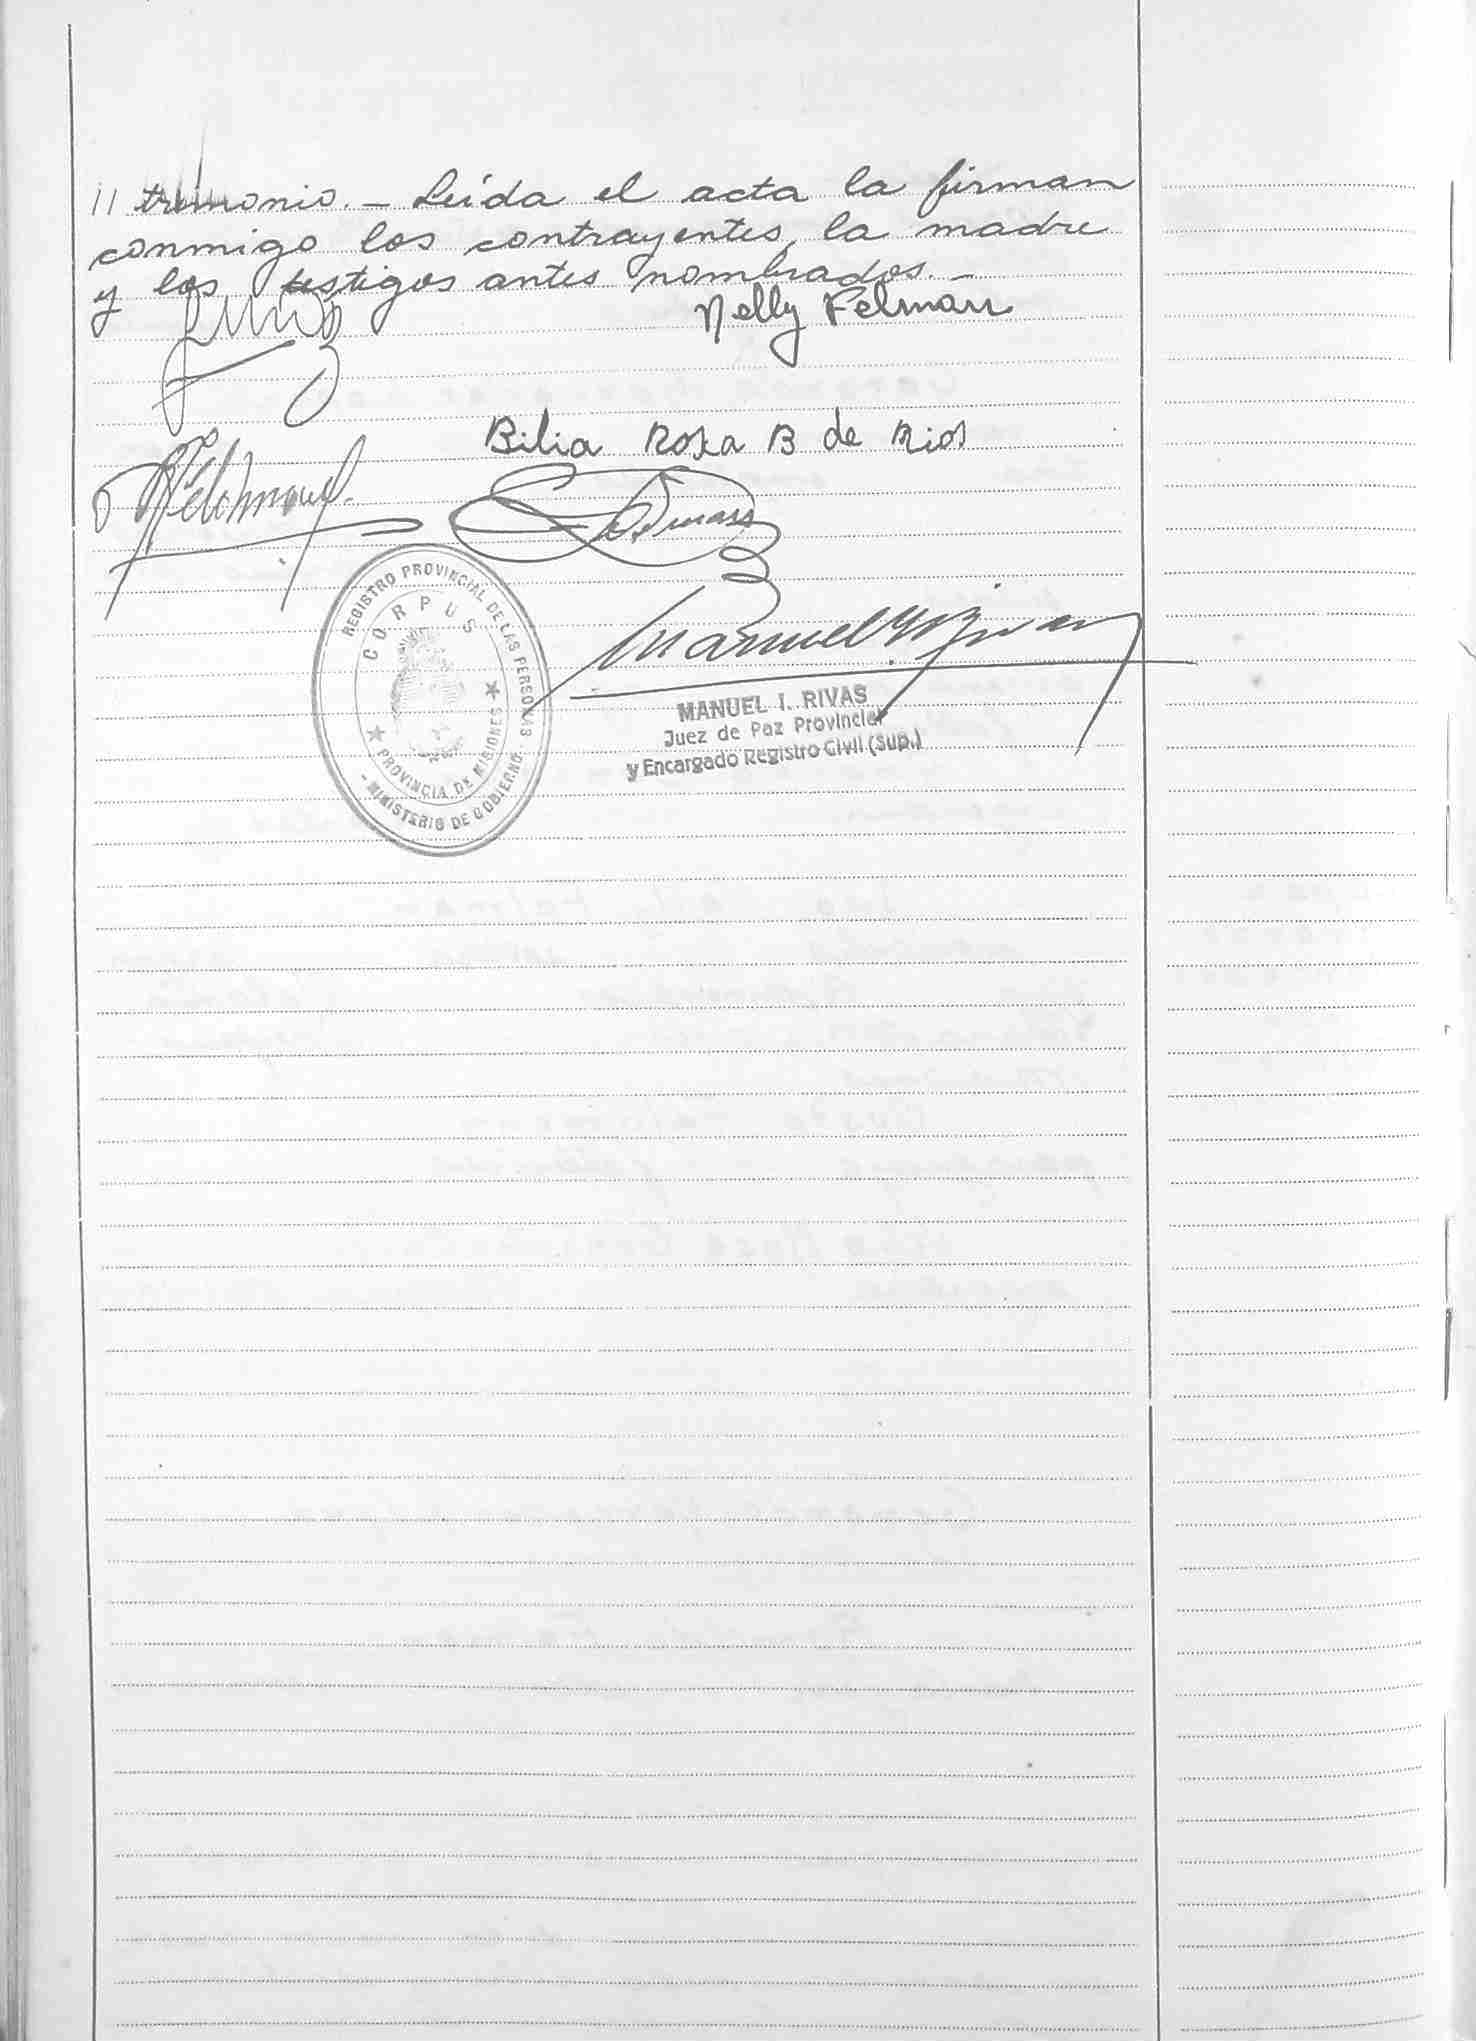 // trimonio. – Leída el acta la firman
conmigo los contrayentes, la madre
y los testigos antes nombrados. –
Nelly Felman
Bilia Rosa B de Rios
REGISTRO PROVINCIAL DE LAS PERSONAS
CORPUS
★ PROVINCIA DE MISIONES ★
- MINISTERIO DE GOBIERNO -
MANUEL I. RIVAS
Juez de Paz Provincial
y Encargado Registro Civil (Sup.)